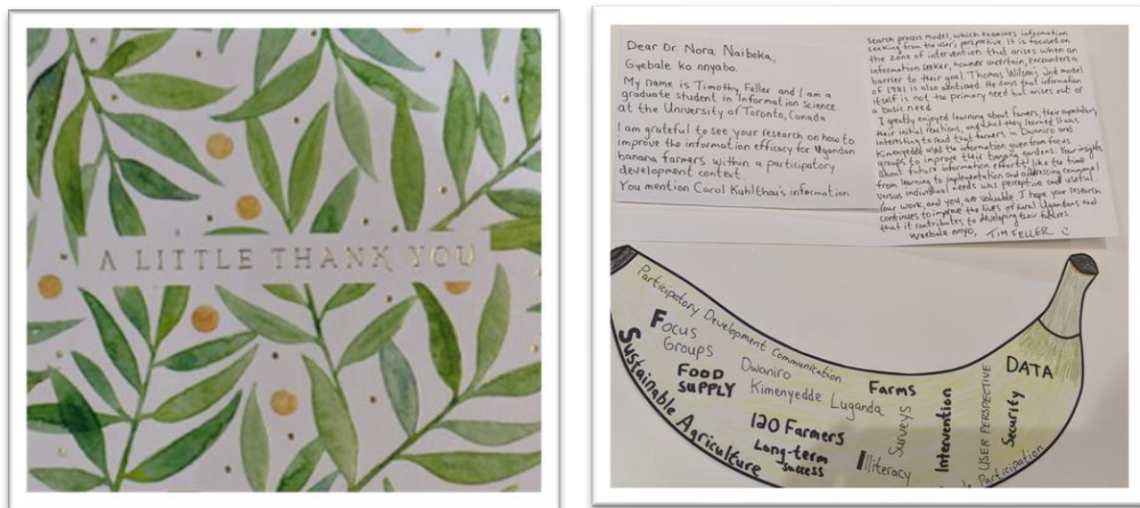 A LITTLE THANK YOU
Dear Dr. Nora Naiboka,
Gyebale ko nnyabo.
My name is Timothy Feller and I am a
graduate student in Information Science
at the University of Toronto, Canada
I am grateful to see your research on how to
improve the information efficacy for Ugandan
banana farmers within a participatory
development context.
You mention Carol Kuhlthau's information
search process model, which examines information
seeking from the user's perspective. It is focused on
the zone of intervention that arises when an
information seeker, however uncertain, encounters a
barrier to their goal. Thomas Wilson's 2nd model
of 1981 is also mentioned. He says that information
itself is not the primary need but arises out of
a basic need.
I greatly enjoyed learning about farmers, their expectations,
their initial reactions, and what they learned. It was
interesting to read that farmers in Dwaniro and
Kimenyedde used the information given from focus
groups to improve their banana gardens. Your insights
about future information efforts, like the time
from learning to implementation and addressing communal
versus individual needs was perceptive and useful.
Your work, and you, are valuable. I hope your research
continues to improve the lives of rural Ugandans and
that it contributes to developing their futures.
Weebale nnyo, TIM FELLER
Participatory Development Communication
Focus
Groups
Sustainable Agriculture
FOOD
SUPPLY
Dwaniro
Kimenyedde
Luganda
120 Farmers
Long-term
success
Farms
Surveys
Illiteracy
Intervention
USER PERSPECTIVE
DATA
Security
Participation